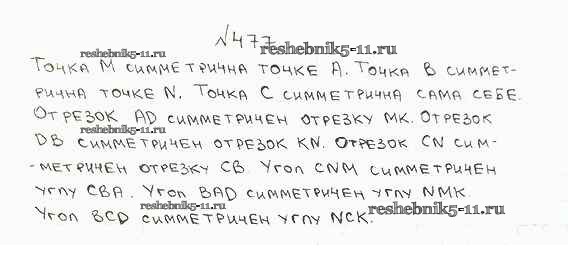 №477
reshebnik5-11.ru reshebnik5-11.ru
Точка M симметрична точке A. Точка B симмет-
рична точке N. Точка C симметрична сама себе.
Отрезок AD симметричен отрезку MK. Отрезок
reshebnik5-11.ru
DB симметричен отрезок KN. Отрезок CN сим-
-метричен отрезку CB. Угол CNM симметричен
углу CBA. Угол BAD симметричен углу NMK.
reshebnik5-11.ru reshebnik5-11.ru
Угол BCD симметричен углу NCK.
reshebnik5-11.ru